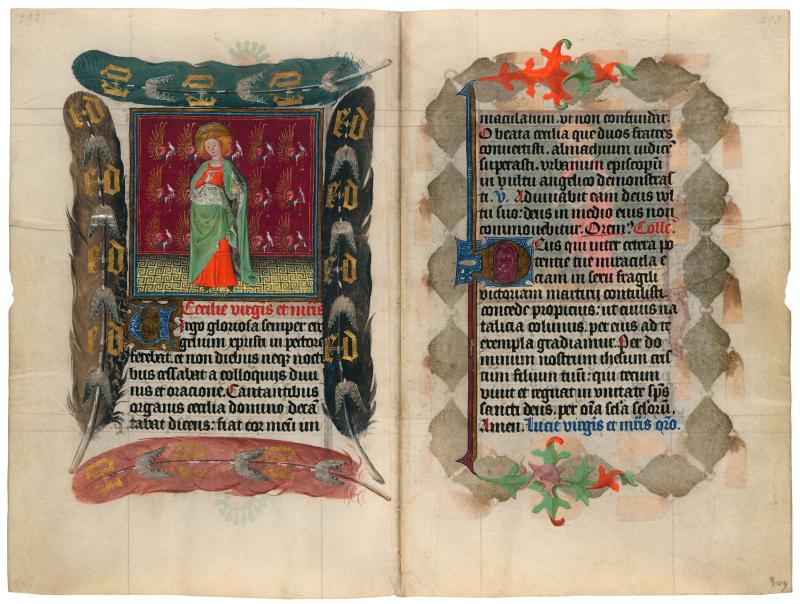 292
Cecilie virgīs et mrīs
Virgo gloriosa semper eu
gelium xpristi in pectore
ferebat. et non diebus neqz nocti
bus cessabat a colloquijs diui
nis et oracione. Cantantibus
organis cecilia domino decā
tabat dicens: fiat cor meū im
293
maculatum. vt non confundar.
O beata cecilia que duos fratres
conuertisti. almachium iudicē
superasti. vrbanum episcopū
in vultu angelico demonstras
ti. V. Adiuuabit eam deus vl
tu suo: deus in medio eius non
commouebitur. Orem? Collc.
Deus qui inter cetera po
tentie tue miracula e
ciam in sexu fragili
victoriam martirii contulisti
concede propicius: ut cuius na
talicia colimus. per eius ad te
exempla gradiamur. Per do
minum nostrum ihesum cris
tum filium tuū: qui tecum
viuit et regnat in vnitate sp̄s
sancti deus. per oīa sclā sclorū.
Amen. Lucie virgīs et mrīs oro.
309